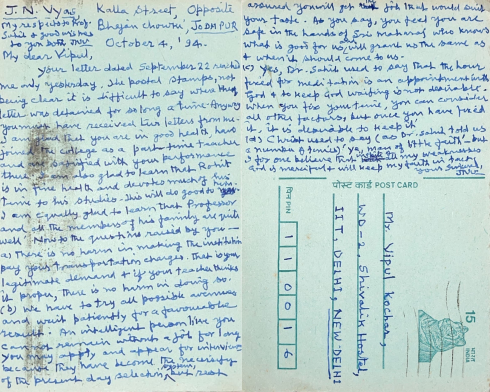 J. N. Vyas
Kalla Street, Opposite
My respects to Prof.
Bhaiyan Chowki, JODHPUR
Sahib & good wishes
to you both JNV
October 4, '94.
My dear Vipul,
Your letter dated September 22 reached
me only yesterday. The postal stamps, not
being clear it is difficult to say where the
letter was detained for so long a time. Anyway
you must have received two letters from me.
you are in good health
the college as a part-time teacher
satisfied with your performance
also glad to learn that
is in fine health and devotes much of his
time to his studies. This will do good to
I am equally glad to learn that Professor
and all the members of his family are quite
well. Now to the questions raised by you —
a) There is no harm in making the institution
pay your transportation charges. That is your
legitimate demand & if your teacher thinks
it proper, there is no harm in doing so.
(b) We have to try all possible avenues
and wait patiently for a favourable
result. An intelligent person like you
cannot remain without a job for long
You may apply, and appear for interviews
because they have become the necessity
of the present day selection system, but rest
assured you will get a job that would suit
your taste. As you say, you feel you are
safe in the hands of Sri Maharaj who knows
what is good for us, will grant us the same as
& when it should come to us.
c) Yes, Dr. Sahib used to say that the hour
fixed for meditation is an appointment with
God & to keep God waiting is not desirable.
When you fix your time, you can consider
all other factors, but once you have fixed
it, it is desirable to keep it
(d) Christ used to say (as Dr. Sahib told us
a number of times) 'ye, men of little faith' but
I for one believe that is my weakness but
God is merciful & will keep my faith in tact
Yours Sincerely,
JNV
पोस्ट कार्ड POST CARD
पिन PIN
1 1 0 0 1 6
Mr. Vipul Kochar,
ND-2, Shivalik Hostel,
IIT, DELHI, NEW DELHI
15
भारत
INDIA